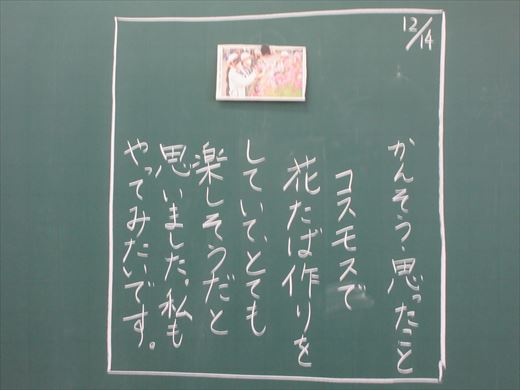 12/14
かんそう・思ったこと
コスモスで
花たば作りを
していて、とても
楽しそうだと
思いました。私も
やってみたいです。